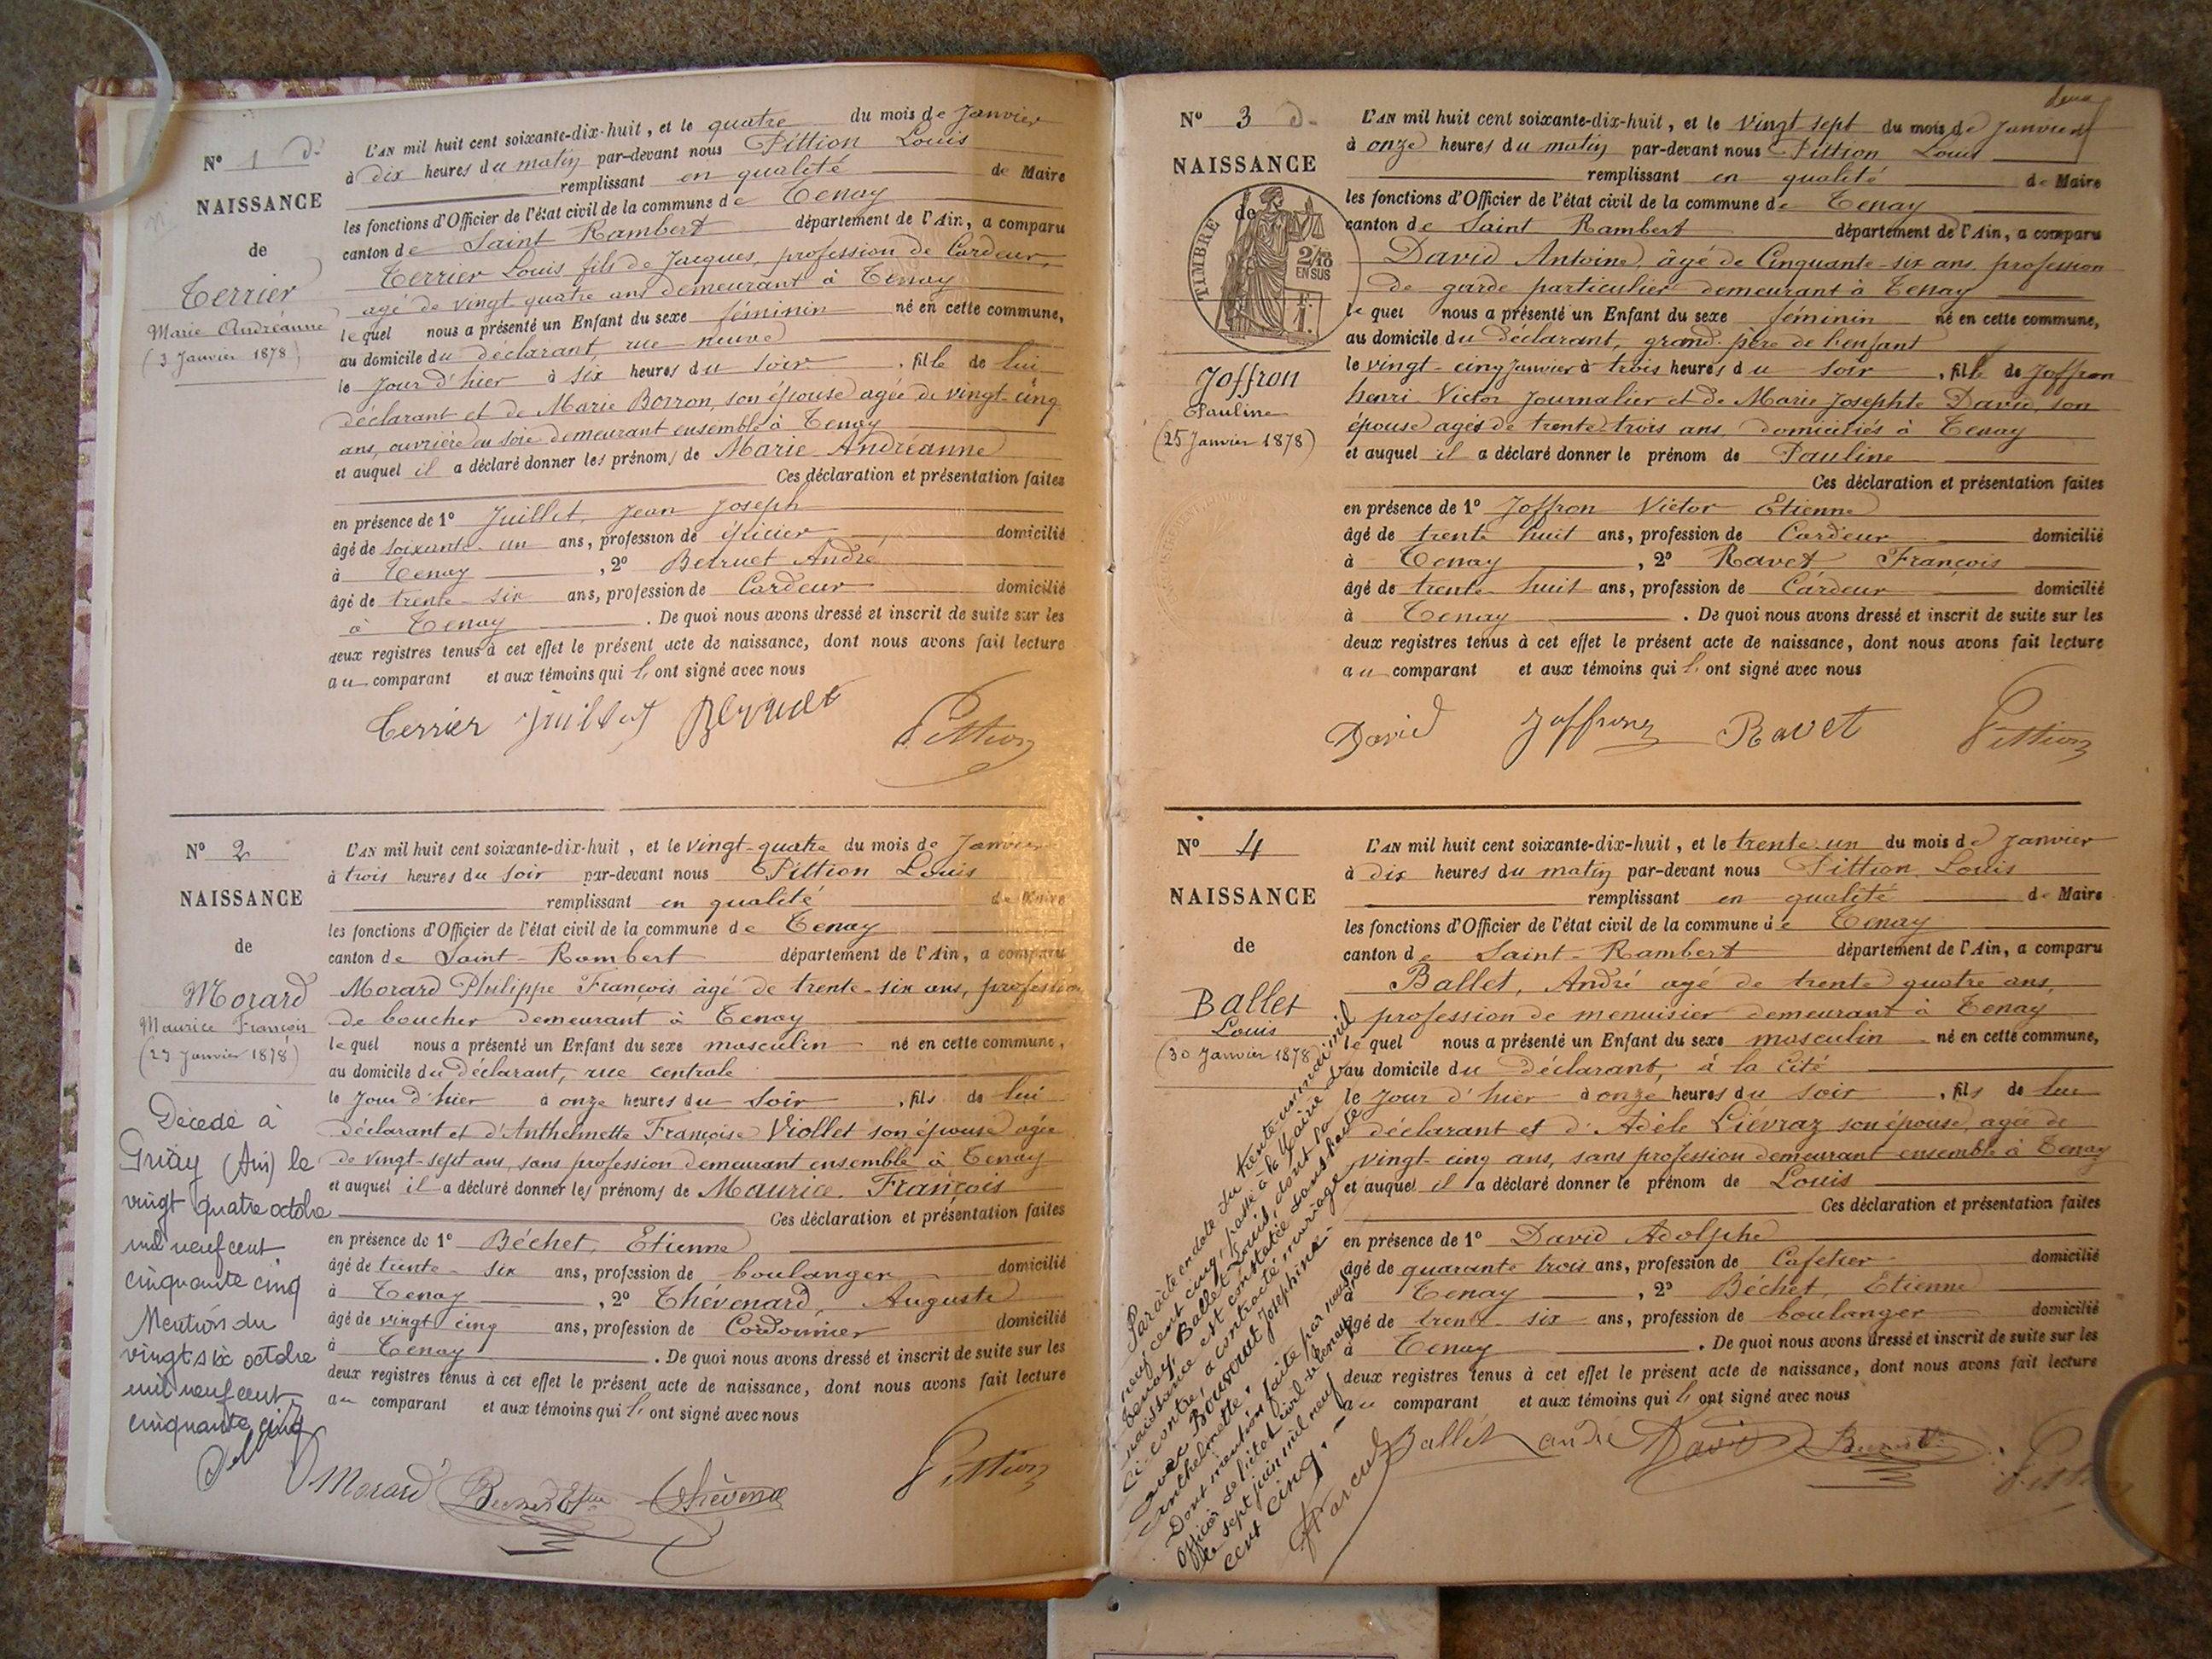 N° 1
NAISSANCE
de
Terrier
Marie Andréanne
(3 Janvier 1878)
L'AN mil huit cent soixante-dix-huit, et le quatre du mois de Janvier
à dix heures du matin par-devant nous Pittion Louis
remplissant en qualité de Maire
les fonctions d'Officier de l'état civil de la commune de Tenay
canton de Saint Rambert département de l'Ain, a comparu
Terrier Louis fils de Jacques, profession de Cardeur,
agé de vingt quatre ans demeurant à Tenay
lequel nous a présenté un Enfant du sexe féminin né en cette commune,
au domicile du déclarant, rue neuve
le jour d'hier à six heures du soir, fille de lui
déclarant et de Marie Borron, son épouse agée de vingt-cinq
ans, ouvrière en soie demeurant ensemble à Tenay
et auquel il a déclaré donner les prénoms de Marie Andréanne
Ces déclaration et présentation faites
en présence de 1° Juillet, Jean Joseph
âgé de soixante-un ans, profession de épicier domicilié
à Tenay, 2° Betruet André
âgé de trente-six ans, profession de Cardeur domicilié
à Tenay. De quoi nous avons dressé et inscrit de suite sur les
deux registres tenus à cet effet le présent acte de naissance, dont nous avons fait lecture
au comparant et aux témoins qui l'ont signé avec nous
Terrier Juillet Pittion
N° 2
NAISSANCE
de
Morard
Maurice François
(23 Janvier 1878)
Décédé à
Priay (Ain) le
vingt quatre octobre
mil neuf cent
cinquante cinq
Mention du
vingt six octobre
mil neuf cent
cinquante cinq
L'AN mil huit cent soixante-dix-huit, et le vingt-quatre du mois de Janvier
à trois heures du soir par-devant nous Pittion Louis
remplissant en qualité de Maire
les fonctions d'Officier de l'état civil de la commune de Tenay
canton de Saint-Rambert département de l'Ain, a comparu
Morard Philippe François âgé de trente-six ans, profession
de boucher demeurant à Tenay
lequel nous a présenté un Enfant du sexe masculin né en cette commune,
au domicile du déclarant, rue centrale
le jour d'hier à onze heures du soir, fils de lui
déclarant et d'Anthelmette Françoise Viollet son épouse agée
de vingt-sept ans, sans profession demeurant ensemble à Tenay
et auquel il a déclaré donner les prénoms de Maurice François
Ces déclaration et présentation faites
en présence de 1° Béchet, Etienne
âgé de trente-six ans, profession de boulanger domicilié
à Tenay, 2° Thévenard, Auguste
âgé de vingt cinq ans, profession de Cordonnier domicilié
à Tenay. De quoi nous avons dressé et inscrit de suite sur les
deux registres tenus à cet effet le présent acte de naissance, dont nous avons fait lecture
au comparant et aux témoins qui l'ont signé avec nous
Morard Pittion
deux
N° 3
NAISSANCE
de
TIMBRE
2/10 EN SUS
Joffron
Pauline
(25 Janvier 1878)
L'AN mil huit cent soixante-dix-huit, et le vingt-sept du mois de Janvier
à onze heures du matin par-devant nous Pittion Louis
remplissant en qualité de Maire
les fonctions d'Officier de l'état civil de la commune de Tenay
canton de Saint Rambert département de l'Ain, a comparu
David Antoine, âgé de Cinquante-six ans, profession
de garde particulier demeurant à Tenay
lequel nous a présenté un Enfant du sexe féminin né en cette commune,
au domicile du déclarant, grand-père de l'enfant
le vingt-cinq janvier à trois heures du soir, fille de Joffron
henri Victor Journalier et de Marie Josephte David, son
épouse agés de trente-trois ans, domiciliés à Tenay
et auquel il a déclaré donner le prénom de Pauline
Ces déclaration et présentation faites
en présence de 1° Joffron Victor Etienne
âgé de trente huit ans, profession de Cardeur domicilié
à Tenay, 2° Ravet François
âgé de trente-huit ans, profession de Cardeur domicilié
à Tenay. De quoi nous avons dressé et inscrit de suite sur les
deux registres tenus à cet effet le présent acte de naissance, dont nous avons fait lecture
au comparant et aux témoins qui l'ont signé avec nous
David Joffron Ravet Pittion
N° 4
NAISSANCE
de
Ballet
Louis
(30 Janvier 1878)
Par acte en date du trente-un mai mil
neuf cent cinq, passé à la Mairie de
Tenay, Ballet Louis, dont la
naissance est constatée dans l'acte
ci-contre, a contracté mariage
avec Bouvrat Joséphine
Anthelmette.
Dont mention faite par nous
Officier de l'état civil de Tenay
le sept juin mil neuf
cent cinq.
L'AN mil huit cent soixante-dix-huit, et le trente-un du mois de Janvier
à dix heures du matin par-devant nous Pittion Louis
remplissant en qualité de Maire
les fonctions d'Officier de l'état civil de la commune de Tenay
canton de Saint-Rambert département de l'Ain, a comparu
Ballet, André agé de trente quatre ans,
profession de menuisier demeurant à Tenay
lequel nous a présenté un Enfant du sexe masculin né en cette commune,
au domicile du déclarant, à la Cité
le jour d'hier à onze heures du soir, fils de lui
déclarant et d'Adèle Liévraz son épouse, agée de
vingt-cinq ans, sans profession demeurant ensemble à Tenay
et auquel il a déclaré donner le prénom de Louis
Ces déclaration et présentation faites
en présence de 1° David Adolphe
âgé de quarante trois ans, profession de Cafetier domicilié
à Tenay, 2° Béchet, Etienne
âgé de trente-six ans, profession de boulanger domicilié
à Tenay. De quoi nous avons dressé et inscrit de suite sur les
deux registres tenus à cet effet le présent acte de naissance, dont nous avons fait lecture
au comparant et aux témoins qui l'ont signé avec nous
Ballet andré David